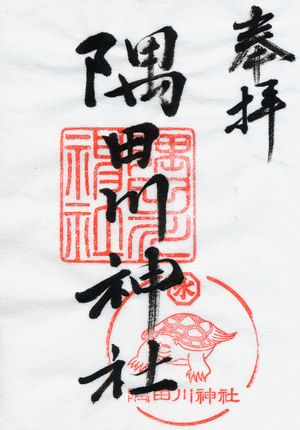 奉拝
隅田川神社
隅田川神社
水
隅田川神社